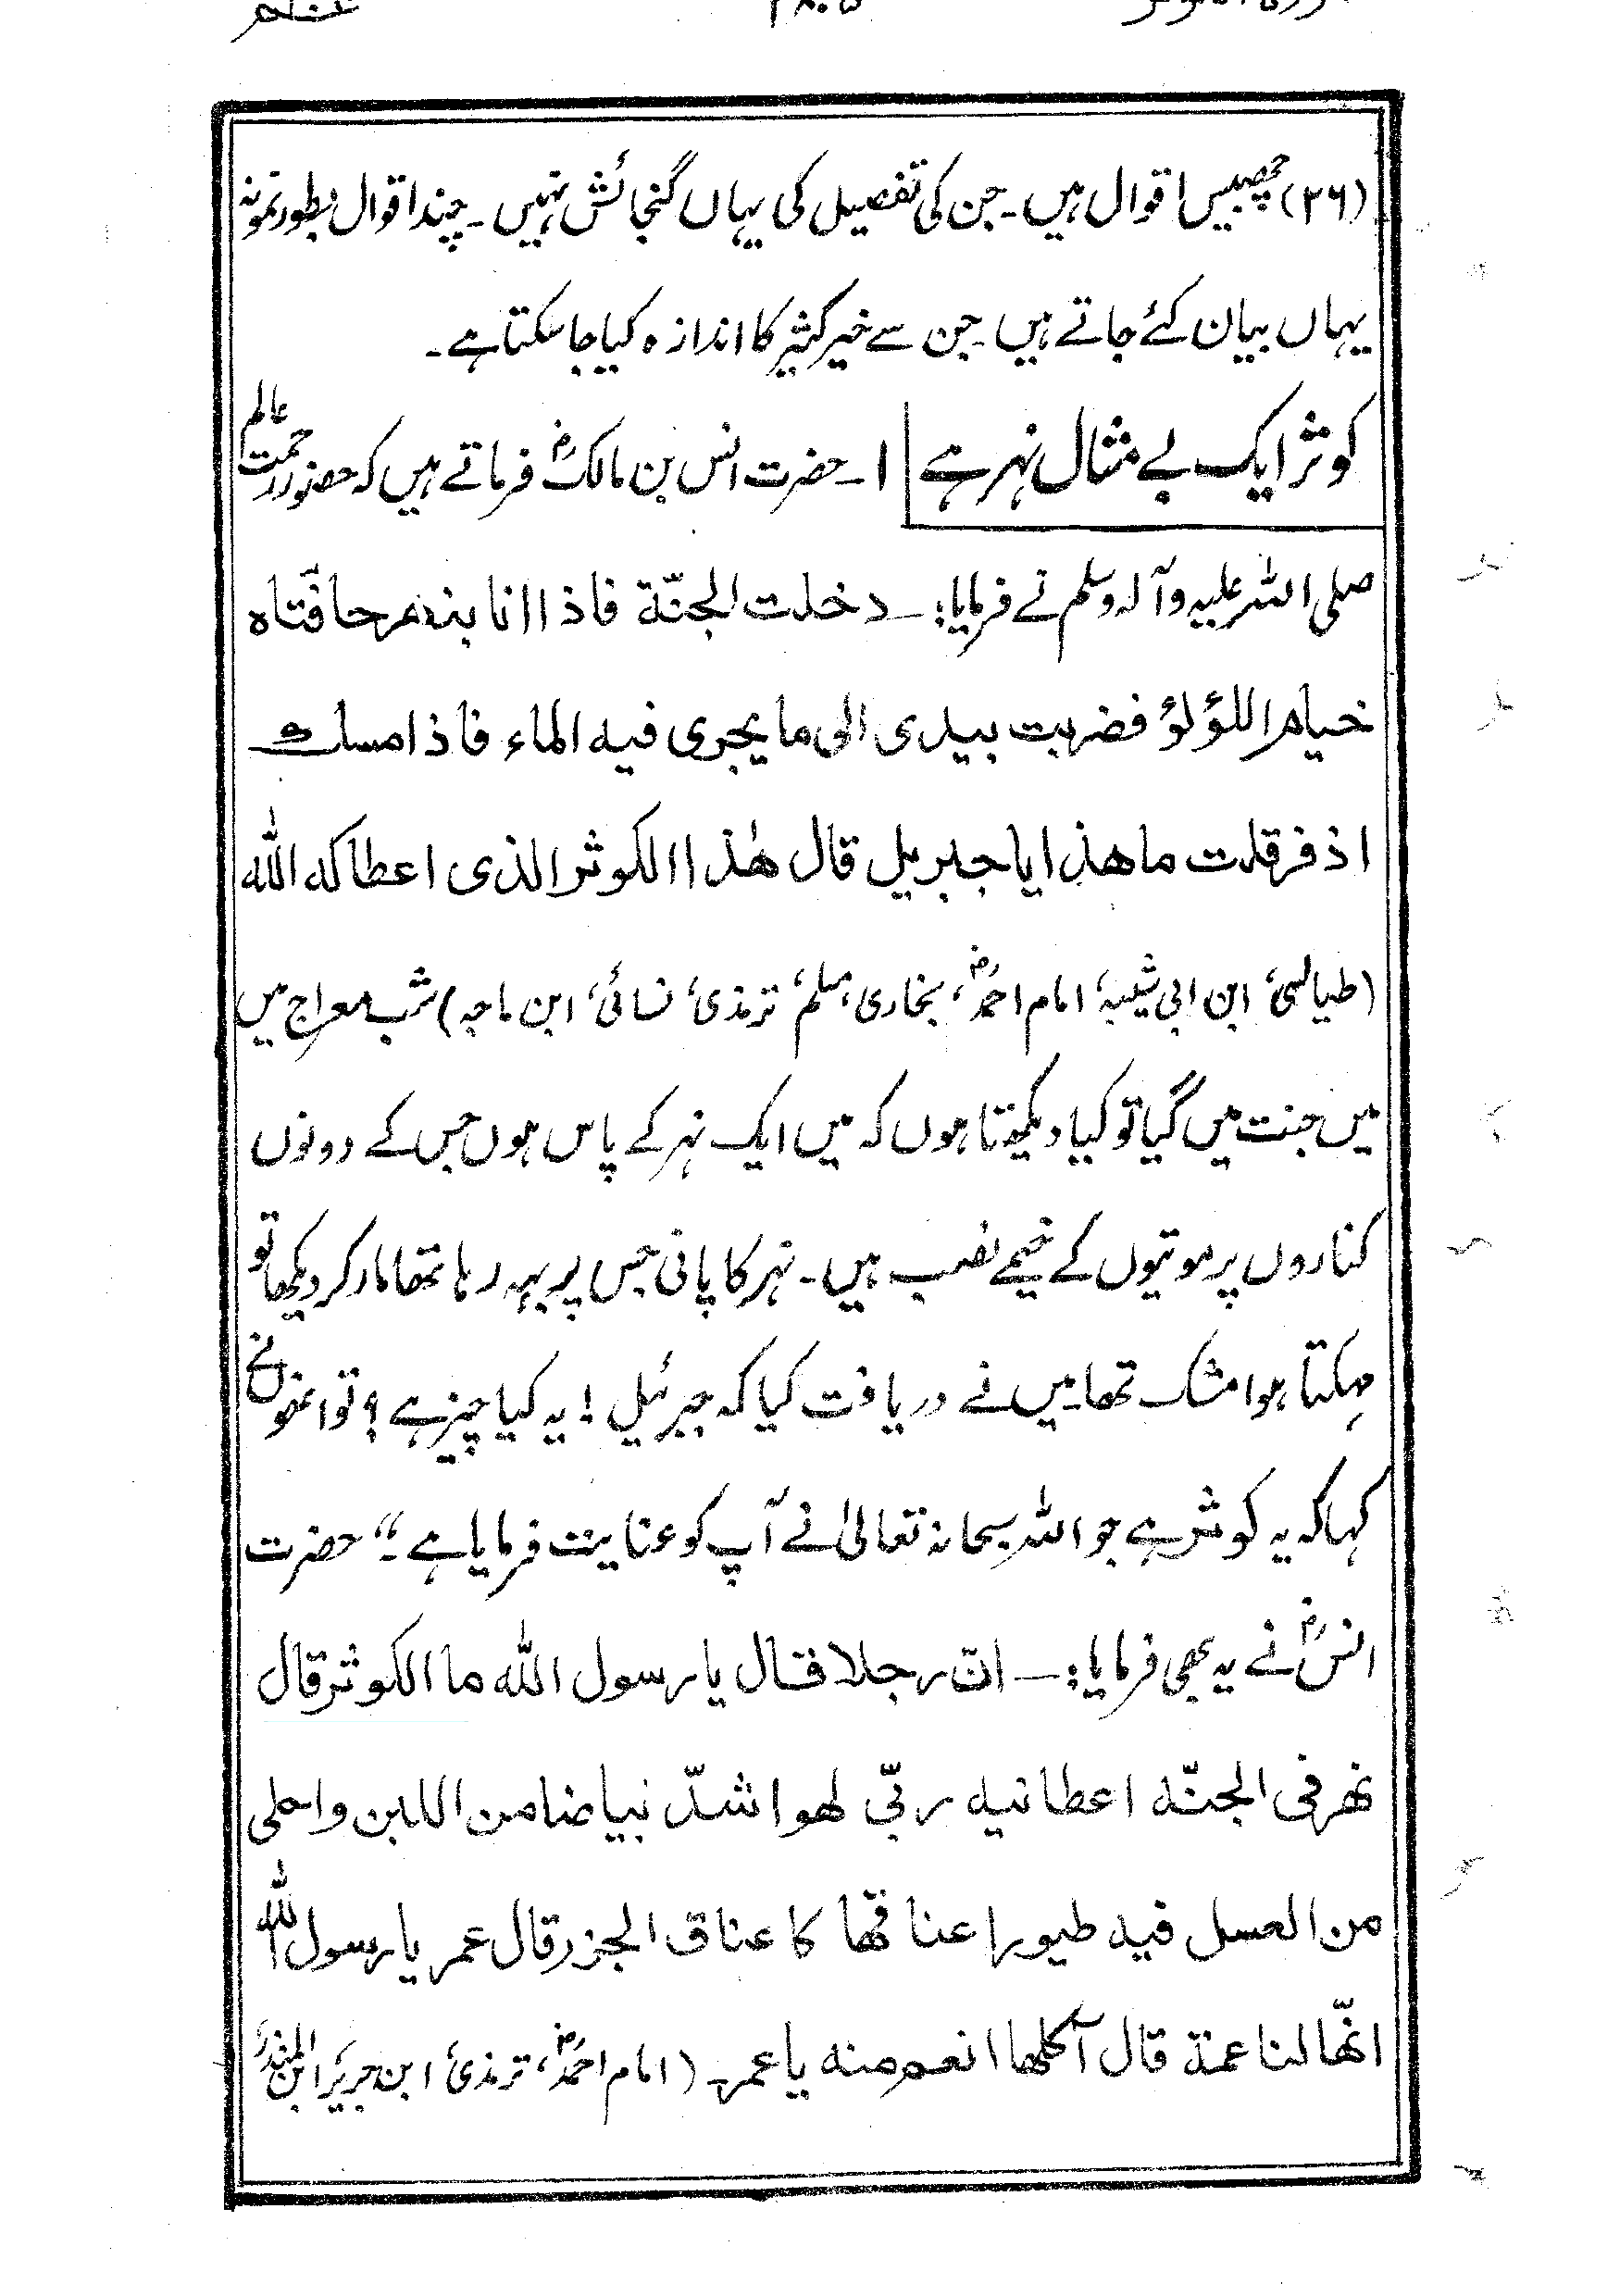 (۲۶) چھبیس اقوال ہیں۔ جن کی تفصیل کی یہاں گنجائش نہیں۔ چند اقوال بطور نمونہ
یہاں بیان کئے جاتے ہیں جن سے خیر کثیر کا اندازہ کیا جا سکتا ہے۔
کوثر ایک بے مثال نہر ہے ۱۔ حضرت انس بن مالکؓ فرماتے ہیں کہ حضور رحمت عالم
صلی اللہ علیہ وآلہ وسلم نے فرمایا:۔ دخلت الجنّة فاذا انا بنھر حافّتاہ
خیام اللؤلؤ فضربت بیدی الی ما یجری فیه الماء فاذا مسك
اذفر قلت ما ھذا یا جبریل قال ھٰذا الکوثر الذی اعطاکه الله
(طیالسی، ابن ابی شیبہ، امام احمدؓ، بخاری، مسلم، ترمذی، نسائی، ابن ماجہ) شب معراج میں
میں جنت میں گیا تو کیا دیکھتا ہوں کہ میں ایک نہر کے پاس ہوں جس کے دونوں
کناروں پر موتیوں کے خیمے نصب ہیں۔ نہر کا پانی جس پر بہہ رہا تھا مار کر دیکھا تو
مہکتا ہوا مشک تھا۔ میں نے دریافت کیا کہ جبرئیل! یہ کیا چیز ہے؟ تو انھوں نے
کہا کہ یہ کوثر ہے جو اللہ سبحانہ تعالیٰ نے آپ کو عنایت فرمایا ہے۔“ حضرت
انسؓ نے یہ بھی فرمایا:۔ انّ رجلا قال یا رسول الله ما الکوثر قال
نھر فی الجنّة اعطانیه ربّی لھو اشدّ بیاضا من اللبن واحلی
من العسل فیه طیور اعناقھا کاعناق الجزر قال عمر یا رسول الله
انّھا لناعمة قال آکلھا انعم منه یا عمر۔ (امام احمدؓ، ترمذی، ابن جریر، ابن المنذر،